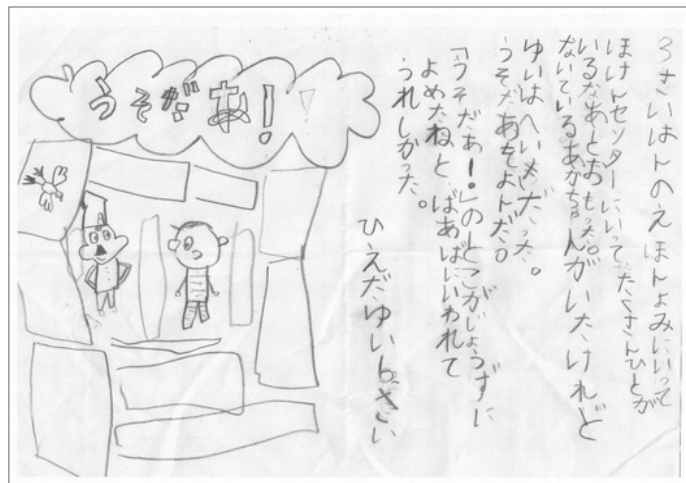 3さいはんのえほんよみにいって
ほけんセンターにいって たくさんひとが
いるなあとおもった。
ないているあかちゃんがいたけれど
ゆいはへいきだった。
うそだあをよんだ。
「うそだぁー!」のとこがじょうずに
よめたねと ばあばにいわれて
うれしかった。
ひえだゆい6さい
うそだぁ!